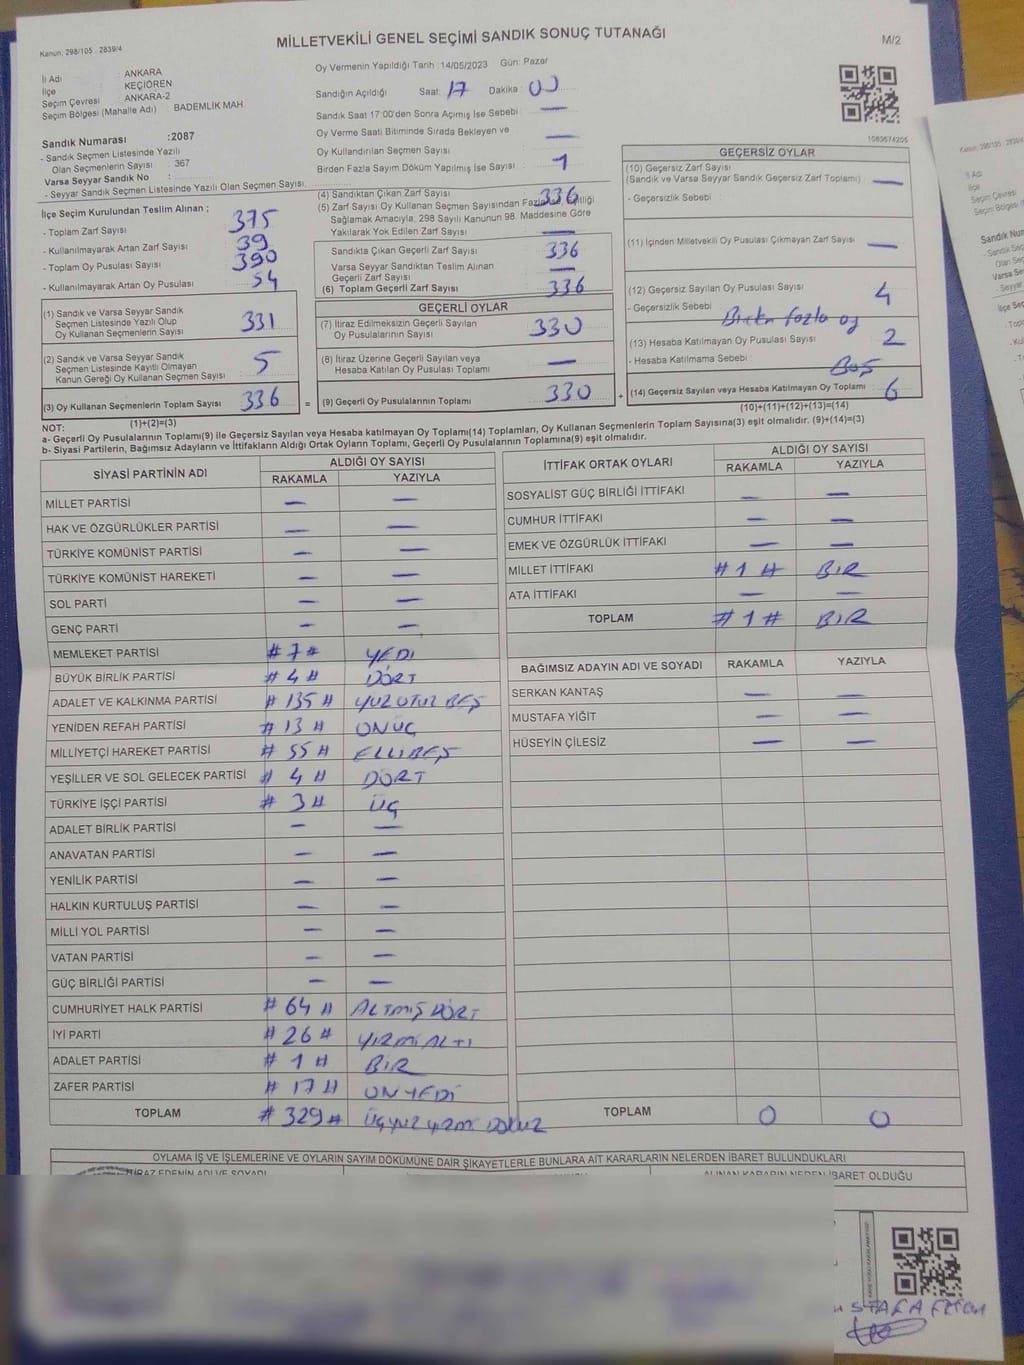 Kanun, 298/105 . 2839/4
MİLLETVEKİLİ GENEL SEÇİMİ SANDIK SONUÇ TUTANAĞI
M/2
İli Adı : ANKARA
İlçe : KEÇİÖREN
Seçim Çevresi : ANKARA-2
Seçim Bölgesi (Mahalle Adı) : BADEMLİK MAH
Sandık Numarası : 2087
- Sandık Seçmen Listesinde Yazılı
Olan Seçmenlerin Sayısı : 367
Varsa Seyyar Sandık No :
- Seyyar Sandık Seçmen Listesinde Yazılı Olan Seçmen Sayısı
Oy Vermenin Yapıldığı Tarih : 14/05/2023 Gün: Pazar
Sandığın Açıldığı Saat: 17 Dakika: 00
Sandık Saat 17:00'den Sonra Açımış İse Sebebi : —
Oy Verme Saati Bitiminde Sırada Bekleyen ve
Oy Kullandırılan Seçmen Sayısı : —
Birden Fazla Sayım Döküm Yapılmış İse Sayısı : 1
1083674205
İlçe Seçim Kurulundan Teslim Alınan ;
- Toplam Zarf Sayısı : 375
- Kullanılmayarak Artan Zarf Sayısı : 39
- Toplam Oy Pusulası Sayısı : 390
- Kullanılmayarak Artan Oy Pusulası : 54
(1) Sandık ve Varsa Seyyar Sandık
Seçmen Listesinde Yazılı Olup
Oy Kullanan Seçmenlerin Sayısı : 331
(2) Sandık ve Varsa Seyyar Sandık
Seçmen Listesinde Kayıtlı Olmayan
Kanun Gereği Oy Kullanan Seçmen Sayısı : 5
(3) Oy Kullanan Seçmenlerin Toplam Sayısı : 336
(1)+(2)=(3)
(4) Sandıktan Çıkan Zarf Sayısı : 336
(5) Zarf Sayısı Oy Kullanan Seçmen Sayısından Fazla ise, Eşitliği
Sağlamak Amacıyla, 298 Sayılı Kanunun 98. Maddesine Göre
Yakılarak Yok Edilen Zarf Sayısı : —
Sandıkta Çıkan Geçerli Zarf Sayısı : 336
Varsa Seyyar Sandıktan Teslim Alınan
Geçerli Zarf Sayısı : —
(6) Toplam Geçerli Zarf Sayısı : 336
GEÇERLİ OYLAR
(7) İtiraz Edilmeksizin Geçerli Sayılan
Oy Pusulalarının Sayısı : 330
(8) İtiraz Üzerine Geçerli Sayılan veya
Hesaba Katılan Oy Pusulası Toplamı : —
= (9) Geçerli Oy Pusulalarının Toplamı : 330
GEÇERSİZ OYLAR
(10) Geçersiz Zarf Sayısı
(Sandık ve Varsa Seyyar Sandık Geçersiz Zarf Toplamı) : —
- Geçersizlik Sebebi :
(11) İçinden Milletvekili Oy Pusulası Çıkmayan Zarf Sayısı : —
(12) Geçersiz Sayılan Oy Pusulası Sayısı : 4
- Geçersizlik Sebebi : Birden fazla oy
(13) Hesaba Katılmayan Oy Pusulası Sayısı : 2
- Hesaba Katılmama Sebebi : Boş
+ (14) Geçersiz Sayılan veya Hesaba Katılmayan Oy Toplamı : 6
(10)+(11)+(12)+(13)=(14)
NOT:
a- Geçerli Oy Pusulalarının Toplamı(9) ile Geçersiz Sayılan veya Hesaba katılmayan Oy Toplamı(14) Toplamları, Oy Kullanan Seçmenlerin Toplam Sayısına(3) eşit olmalıdır. (9)+(14)=(3)
b- Siyasi Partilerin, Bağımsız Adayların ve İttifakların Aldığı Ortak Oyların Toplamı, Geçerli Oy Pusulalarının Toplamına(9) eşit olmalıdır.
SİYASİ PARTİNİN ADI ALDIĞI OY SAYISI
RAKAMLA YAZIYLA
MİLLET PARTİSİ — —
HAK VE ÖZGÜRLÜKLER PARTİSİ — —
TÜRKİYE KOMÜNİST PARTİSİ — —
TÜRKİYE KOMÜNİST HAREKETİ — —
SOL PARTİ — —
GENÇ PARTİ — —
MEMLEKET PARTİSİ #7# YEDİ
BÜYÜK BİRLİK PARTİSİ #4# DÖRT
ADALET VE KALKINMA PARTİSİ #135# YÜZOTUZBEŞ
YENİDEN REFAH PARTİSİ #13# ONÜÇ
MİLLİYETÇİ HAREKET PARTİSİ #55# ELLİBEŞ
YEŞİLLER VE SOL GELECEK PARTİSİ #4# DÖRT
TÜRKİYE İŞÇİ PARTİSİ #3# ÜÇ
ADALET BİRLİK PARTİSİ — —
ANAVATAN PARTİSİ — —
YENİLİK PARTİSİ — —
HALKIN KURTULUŞ PARTİSİ — —
MİLLİ YOL PARTİSİ — —
VATAN PARTİSİ — —
GÜÇ BİRLİĞİ PARTİSİ — —
CUMHURİYET HALK PARTİSİ #64# ALTMIŞ DÖRT
İYİ PARTİ #26# YİRMİALTI
ADALET PARTİSİ #1# BİR
ZAFER PARTİSİ #17# ONYEDİ
TOPLAM #329# ÜÇYÜZYİRMİ DOKUZ
İTTİFAK ORTAK OYLARI ALDIĞI OY SAYISI
RAKAMLA YAZIYLA
SOSYALİST GÜÇ BİRLİĞİ İTTİFAKI — —
CUMHUR İTTİFAKI — —
EMEK VE ÖZGÜRLÜK İTTİFAKI — —
MİLLET İTTİFAKI #1# BİR
ATA İTTİFAKI — —
TOPLAM #1# BİR
BAĞIMSIZ ADAYIN ADI VE SOYADI RAKAMLA YAZIYLA
SERKAN KANTAŞ — —
MUSTAFA YİĞİT — —
HÜSEYİN ÇİLESİZ — —
TOPLAM 0 0
OYLAMA İŞ VE İŞLEMLERİNE VE OYLARIN SAYIM DÖKÜMÜNE DAİR ŞİKAYETLERLE BUNLARA AİT KARARLARIN NELERDEN İBARET BULUNDUKLARI
İTİRAZ EDENİN ADI VE SOYADI
ALINAN KARARIN NEDEN İBARET OLDUĞU